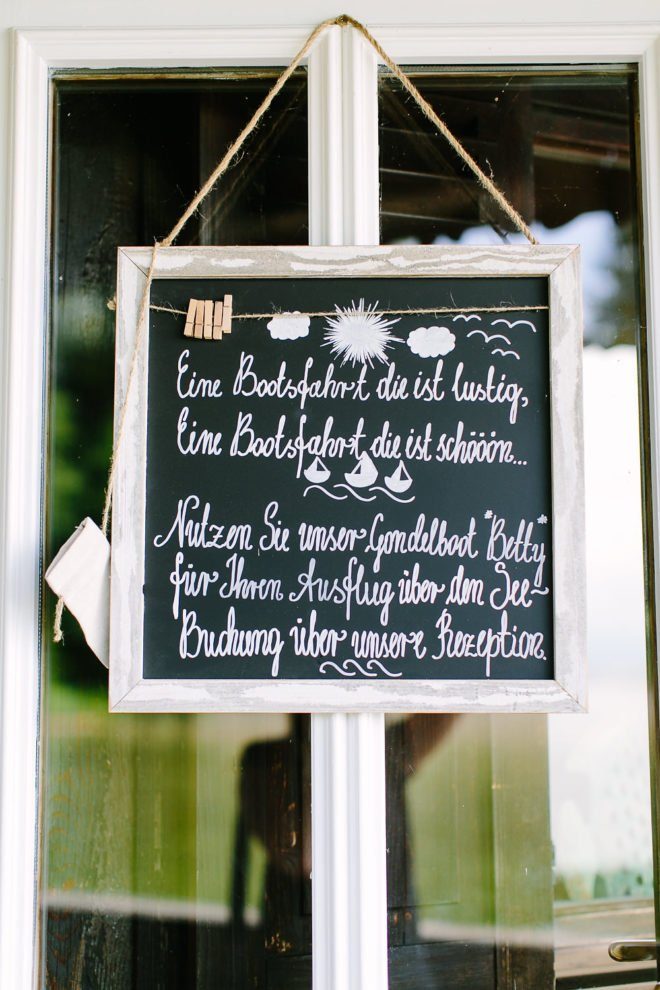 Eine Bootsfahrt die ist lustig,
Eine Bootsfahrt die ist schööön...
Nutzen Sie unser Gondelboot "Betty"
für Ihren Ausflug über den See-
Buchung über unsere Rezeption.